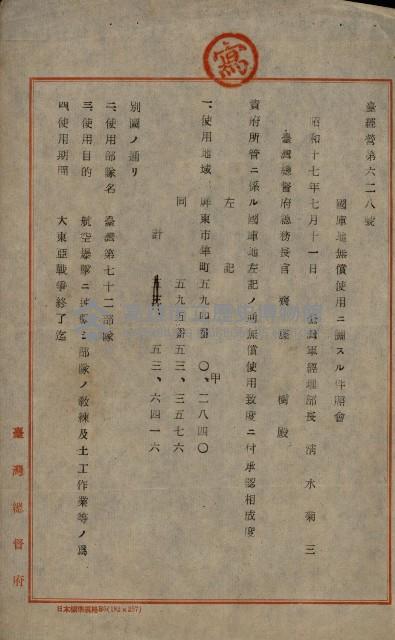 寫
臺經營第六二八號
國庫地無償使用ニ關スル件照會
昭和十七年七月十一日
臺灣軍經理部長 淸水菊三
臺灣總督府總務長官 齋藤 樹殿
貴府所管ニ係ル國庫地左記ノ通無償使用致度ニ付承認相成度
左記
一、使用地域 屏東市
五九四番 〇、二八四〇
甲
同 五九 番 五三、三五七六
計 五三、六四一六
別圖ノ通リ
二、使用部隊名 臺灣第七十二部隊
三、使用目的 航空爆擊ニ 部隊ノ敎練及土工作業等ノ爲
四、使用期間 大東亞戰爭終了迄
臺灣總督府
日本標準規格B5(182×257)